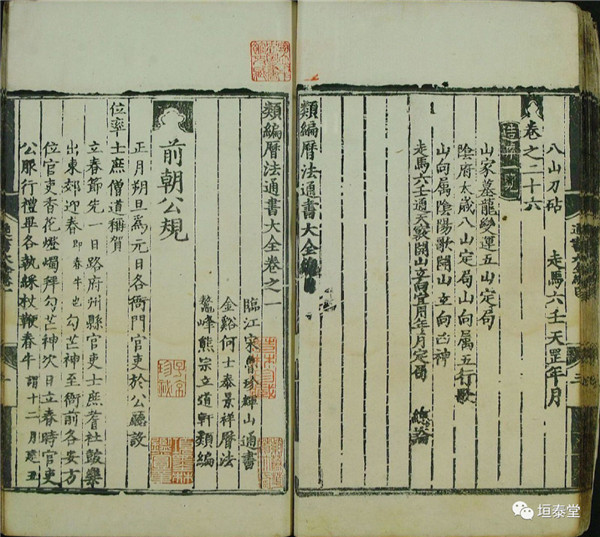 八山刀砧　走馬六壬天罡年月
卷之二十六
山家墓龍變運五山定局
陰府太歲八山定局山向属五行歌
山向属陰陽歌開山立向凶神
走馬六壬通天竅開山立向宜用年月定局　總論
類編曆法通書大全
類編曆法通書大全卷之一
臨江宋魯珍輝山通書
金谿何士泰景祥曆法
鰲峰熊宗立道軒類編
前朝公規
正月朔旦爲元日各衙門官吏於公廳設
位率士庶僧道稱賀
立春節先一日路府州縣官吏士庶耆社鼓樂
出東郊迎春即春牛也勾芒神至衙前各安方
位官吏香花燈燭拜勾芒神次日立春時官吏
公服行禮畢各執綵杖鞭春牛謂十二月建丑
垣泰堂